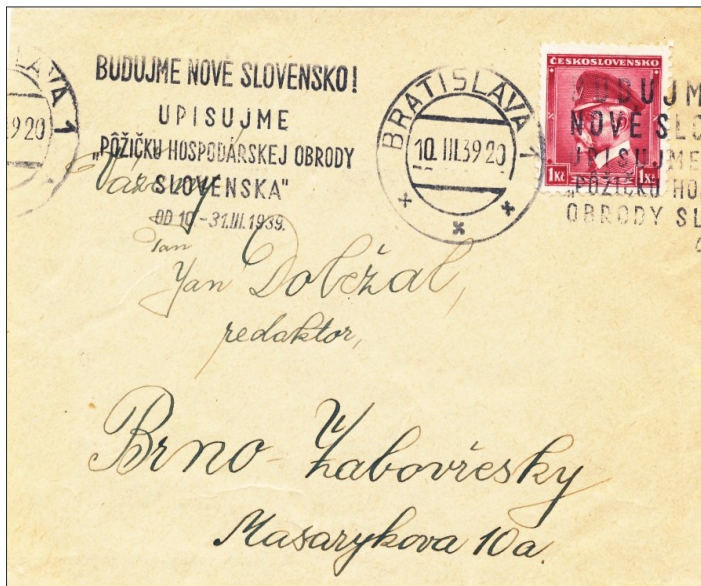 AVA 1
9 20
BUDUJME NOVÉ SLOVENSKO!
UPISUJME
„PÔŽIČKU HOSPODÁRSKEJ OBRODY
SLOVENSKA"
OD 10.-31.III.1939.
BRATISLAVA 1
10.III.39 20
ČESKOSLOVENSKO
1Kč 1Kč
BUDUJM
NOVÉ SLO
UPISUJME
„PÔŽIČKU HO
OBRODY SL
Vážený
Pan
Jan Doležal,
redaktor,
Brno - Žabovřesky
Masarykova 10a.